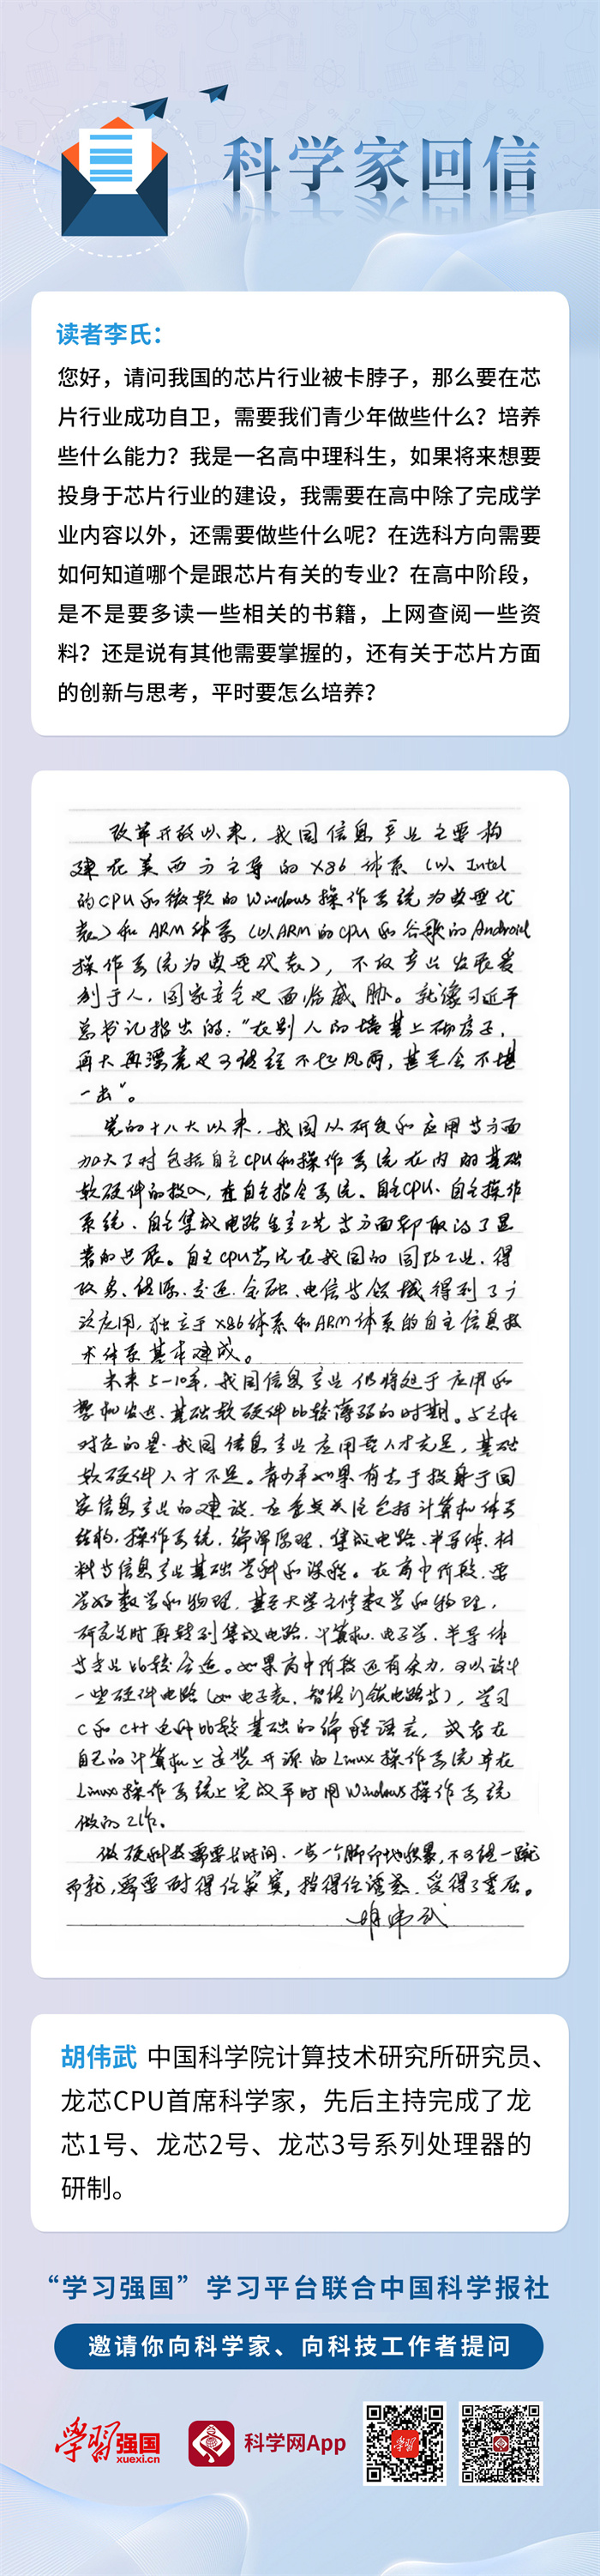 科学家回信
读者李氏：
您好，请问我国的芯片行业被卡脖子，那么要在芯
片行业成功自卫，需要我们青少年做些什么？培养
些什么能力？我是一名高中理科生，如果将来想要
投身于芯片行业的建设，我需要在高中除了完成学
业内容以外，还需要做些什么呢？在选科方向需要
如何知道哪个是跟芯片有关的专业？在高中阶段，
是不是要多读一些相关的书籍，上网查阅一些资
料？还是说有其他需要掌握的，还有关于芯片方面
的创新与思考，平时要怎么培养？
改革开放以来，我国信息产业主要构
建在美西方主导的X86体系（以Intel
的CPU和微软的Windows操作系统为典型代
表）和ARM体系（以ARM的CPU和谷歌的Android
操作系统为典型代表），不仅产业发展受
制于人，国家安全也面临威胁。就像习近平
总书记指出的："在别人的墙基上砌房子，
再大再漂亮也可能经不起风雨，甚至会不堪
一击"。
党的十八大以来，我国从研发和应用等方面
加大了对包括自主CPU和操作系统在内的基础
软硬件的投入，在自主指令系统、自主CPU、自主操作
系统、自主集成电路生产工艺等方面都取得了显
著的进展。自主CPU芯片在我国的国防工业、得
政务、能源、交通、金融、电信等领域得到了广
泛应用，独立于X86体系和ARM体系的自主信息技
术体系基本建成。
未来5-10年，我国信息产业仍将处于应用和
整机发达、基础软硬件比较薄弱的时期。与之相
对应的是，我国信息产业应用型人才充足，基础
软硬件人才不足。青少年如果有志于投身于国
家信息产业的建设，应重点关注包括计算机体系
结构、操作系统、编译原理、集成电路、半导体、材
料等信息产业基础学科和课程。在高中阶段，要
学好数学和物理，甚至大学主修数学和物理，
研究生时再转到集成电路、计算机、电子学、半导体
等专业比较合适。如果高中阶段还有余力，可以设计
一些硬件电路（如电子表、智能门锁电路等），学习
C和C++这种比较基础的编程语言，或者在
自己的计算机上安装开源的Linux操作系统并在
Linux操作系统上完成平时用Windows操作系统
做的工作。
做硬科技需要长时间、一步一个脚印地积累，不可能一蹴
而就，需要耐得住寂寞，挡得住诱惑，受得了委屈。
胡伟武
胡伟武 中国科学院计算技术研究所研究员、
龙芯CPU首席科学家，先后主持完成了龙
芯1号、龙芯2号、龙芯3号系列处理器的
研制。
“学习强国”学习平台联合中国科学报社
邀请你向科学家、向科技工作者提问
学习强国 xuexi.cn 科学网App